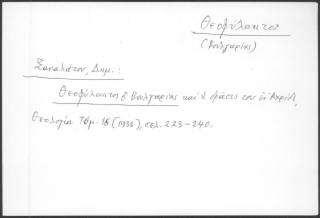 Θεοφύλακτος
(Βουλγαρίας)
Δημ.:
Θεοφύλακτος ὁ Βουλγαρίας καὶ ἡ δράσις του ἐν Ἀχρίδι,
Θεολογία Τόμ. 16 (1938), σελ. 223-240.